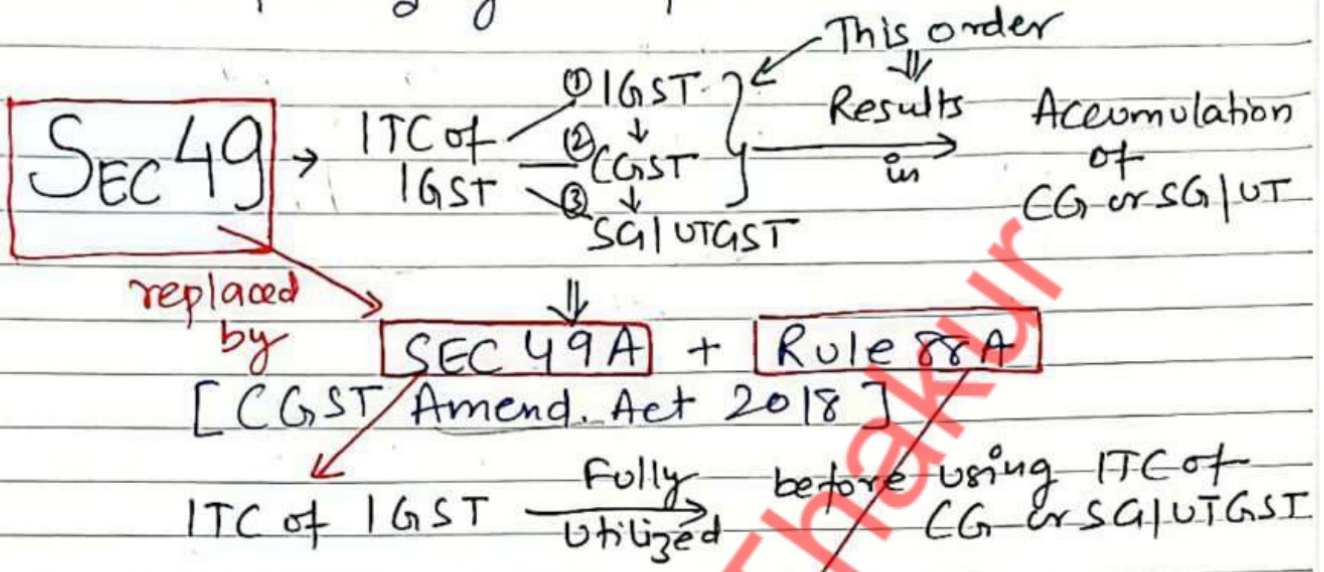 This order
SEC 49 → ITC of IGST
① IGST
↓
② CGST
↓
③ SG|UTGST
⇓
Results in
Accumulation of CG or SG|UT
replaced by
⇓
SEC 49A + Rule 88A
[CGST Amend. Act 2018]
ITC of IGST Fully Utilized before using ITC of CG or SG|UTGST
Thakur